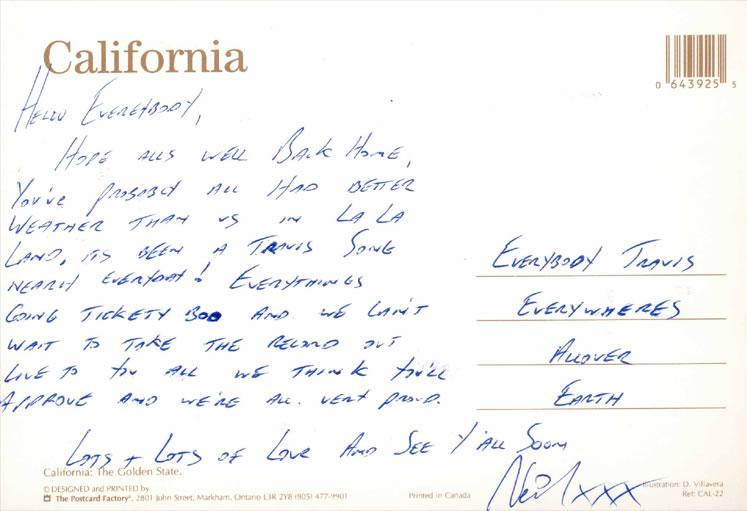 California
0 643925 5
Hello Everebody,
Hope alls well Back Home,
You've probably all Had better
weather than us in La La
Land, its been a Travis Song
nearly everyday! Everythings
going tickety Boo and we can't
wait to take the record out
live to you all we think you'll
approve and we're all very proud.
Lots + Lots of Love And See Y'all Soon
Neil xxx
Everybody Travis
Everywheres
Allover
Earth
California: The Golden State.
© DESIGNED and PRINTED by
The Postcard Factory®, 2801 John Street, Markham, Ontario L3R 2Y8 (905) 477-9901
Printed in Canada
Illustration: D. Villavera
Ref: CAL-22